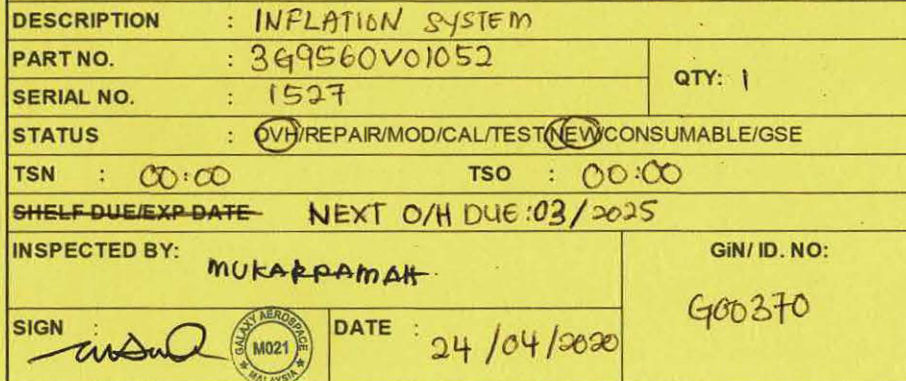 DESCRIPTION : INFLATION SYSTEM
PART NO. : 3G9560V01052
QTY: 1
SERIAL NO. : 1527
STATUS : OVH/REPAIR/MOD/CAL/TEST/NEW/CONSUMABLE/GSE
TSN : 00:00 TSO : 00:00
SHELF DUE/EXP DATE NEXT O/H DUE:03/2025
INSPECTED BY: MUKARRAMAH
GiN/ ID. NO:
G00370
SIGN :
GALAXY AEROSPACE
M021
MALAYSIA
DATE : 24/04/2020